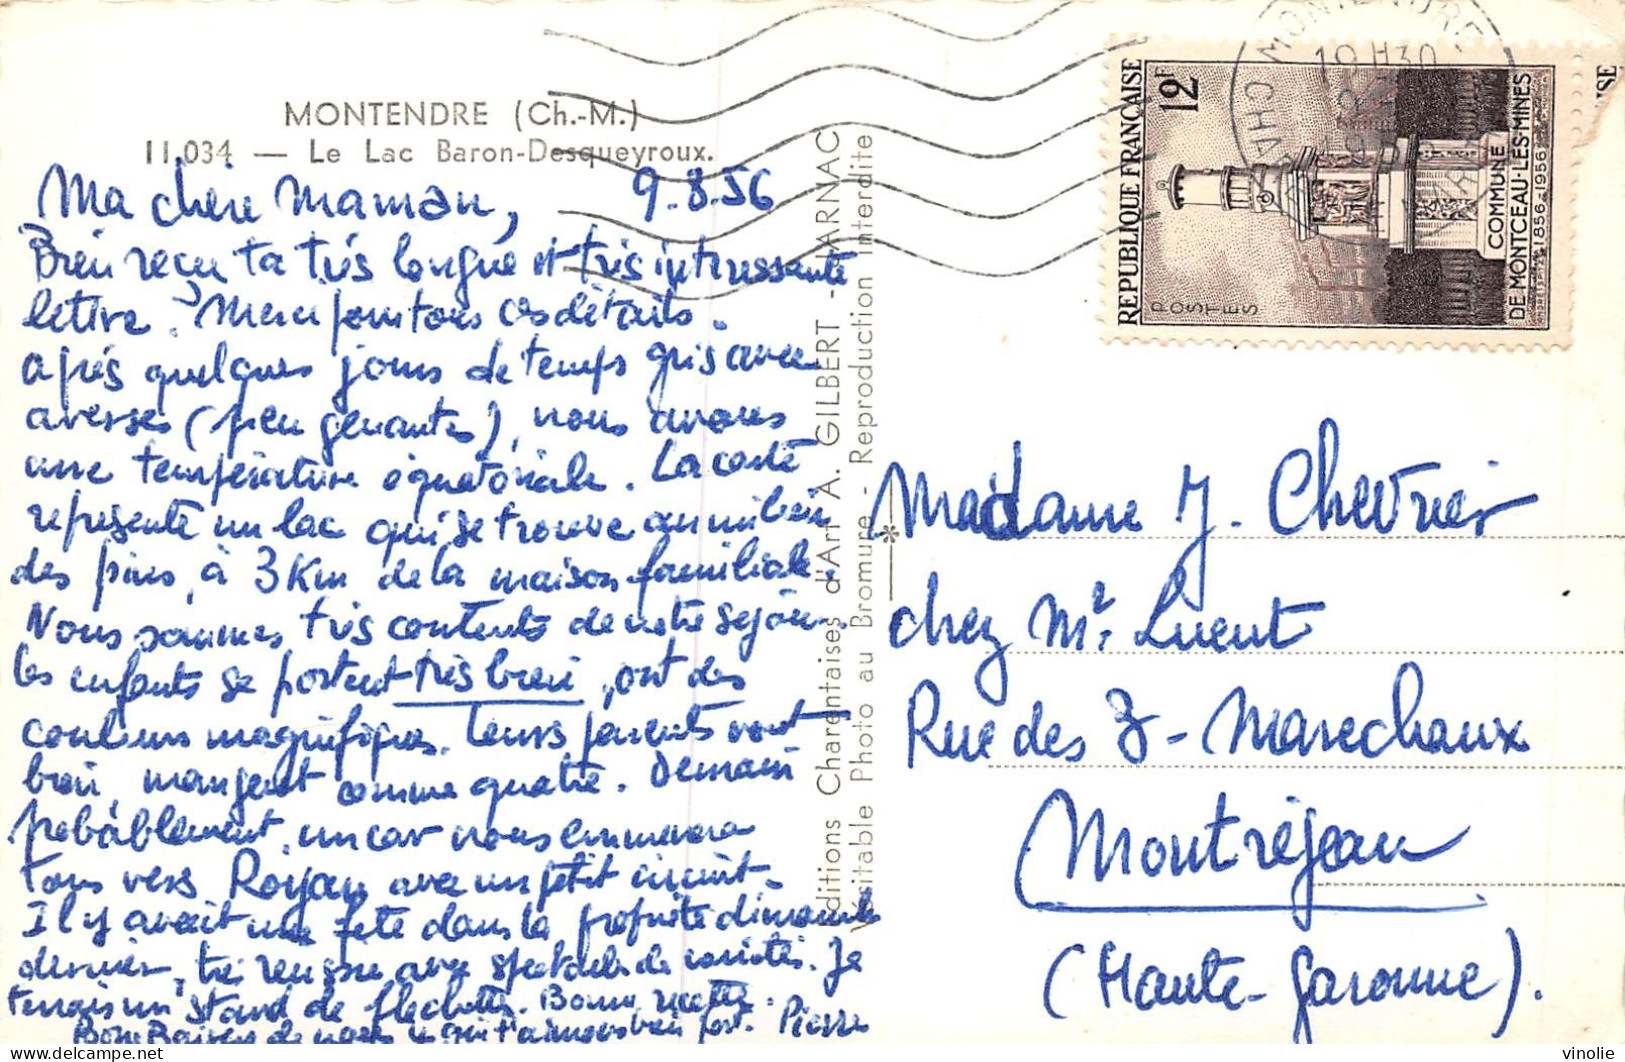 MONTENDRE (Ch.-M.)
11.034 — Le Lac Baron-Desqueyroux.
Ma chère Maman, 9.8.56
Bien reçu ta très longue et très intéressante
lettre. Merci pour tous ces détails.
après quelques jours de temps gris avec
averses (peu genantes), nous avons
une température équatoriale. La carte
represente un lac qui se trouve au milieu
des pins, à 3 Km de la maison familiale.
Nous sommes très contents de notre séjour.
les enfants se portent très bien, ont des
couleurs magnifiques. Leurs parents vont
bien, mangent comme quatre. Demain
probablement, un car nous emmenera
tous vers Royan avec un petit circuit.
Il y avait une fête dans la propriété dimanche
dernier, très réussie avec spectacle de variétés. Je
tenais un stand de flechettes. Bonne recette.
Bons Baisers de nous qui t'aimons bien fort. Pierre
Editions Charentaises d'Art A. GILBERT - JARNAC
Véritable Photo au Bromure - Reproduction Interdite
MONTENDRE
19 H30
CHAR
REPUBLIQUE FRANÇAISE
12F
POSTES
COMMUNE
DE MONTCEAU-LES-MINES
1856-1956
ISE
Madame J. Chevrier
chez Mr. Luent
Rue des 3-Marechaux
Montréjeau
(Haute-Garonne).
vinolie